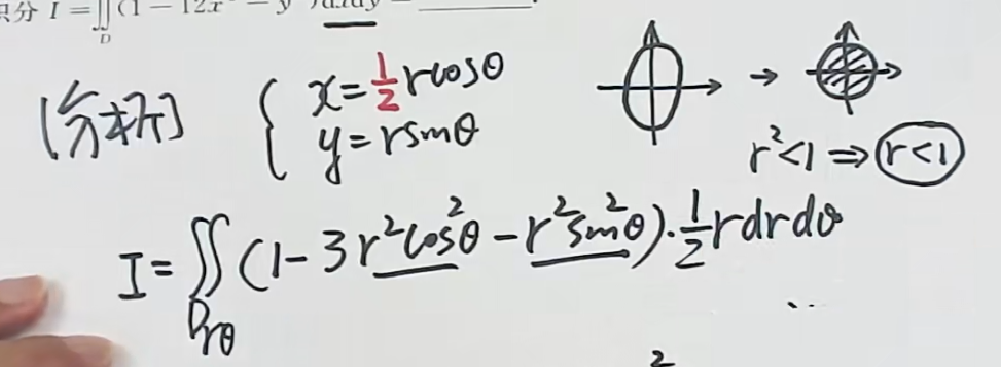 积分 I = ∬_D (1 - 12x² - y²)dxdy = ______.
[分析] { x = 1/2 rcosθ
y = rsinθ
→
r² < 1 ⇒ r < 1
I = ∬_{D_{rθ}} (1 - 3r²cos²θ - r²sin²θ)·1/2 rdrdθ
...
2